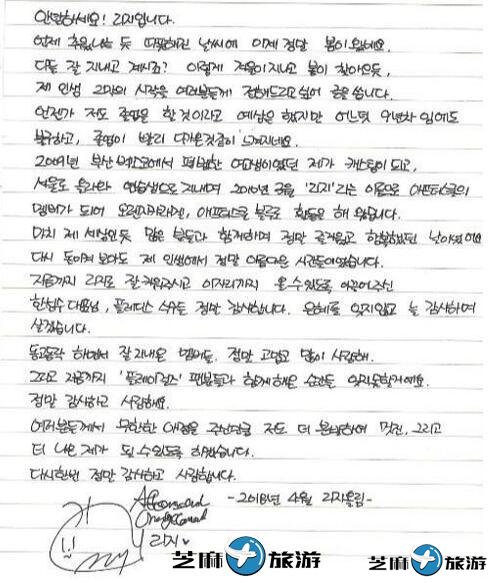 안녕하세요! 리지입니다.
언제 추웠냐는 듯 따뜻해진 날씨에 이제 정말 봄이 왔네요.
다들 잘 지내고 계시죠? 이렇게 겨울이 지나고 봄이 찾아오듯,
제 인생 2막의 시작을 여러분들께 전해드리고 싶어 글을 씁니다.
언젠가 저도 졸업을 할 것이라고 예상은 했지만 어느덧 9년차 임에도
불구하고, 졸업이 빨리 다가온것같이 느껴지네요.
2009년 부산 에서 평범한 여고생이었던 제가 캐스팅이 되고,
서울로 올라와 연습생으로 지내며 2010년 3월 '리지'라는 이름으로 애프터스쿨의
멤버가 되어 오렌지캬라멜, 애프터스쿨 블루로 활동을 해 왔습니다.
마치 제 세상인듯 많은 분들과 함께하며 정말 즐거웠고 행복했던 날이였어요
다시 돌이켜 보아도 제 인생에서 정말 아름다운 시간들이었습니다.
지금까지 리지로 잘 키워주시고 이자리까지 올 수 있도록 이끌어주신
한성수 대표님, 플레디스 식구들 정말 감사합니다. 은혜를 잊지않고 늘 감사하며
살겠습니다.
동고동락 하면서 잘 지내온 멤버들. 정말 고맙고 많이 사랑해.
그리고 지금까지 '플레이걸즈' 팬분들과 함께 해온 순간들 잊지못할거예요.
정말 감사하고 사랑해요.
여러분들께서 무한한 애정을 주신만큼 저도 더 분발하여 멋진, 그리고
더 나은 제가 될 수 있도록 하겠습니다.
다시한번 정말 감사하고 사랑합니다.
-2018년 4월 리지올림-
Afterschool
Orangecaramel
리지♥
芝麻旅游
芝麻旅游